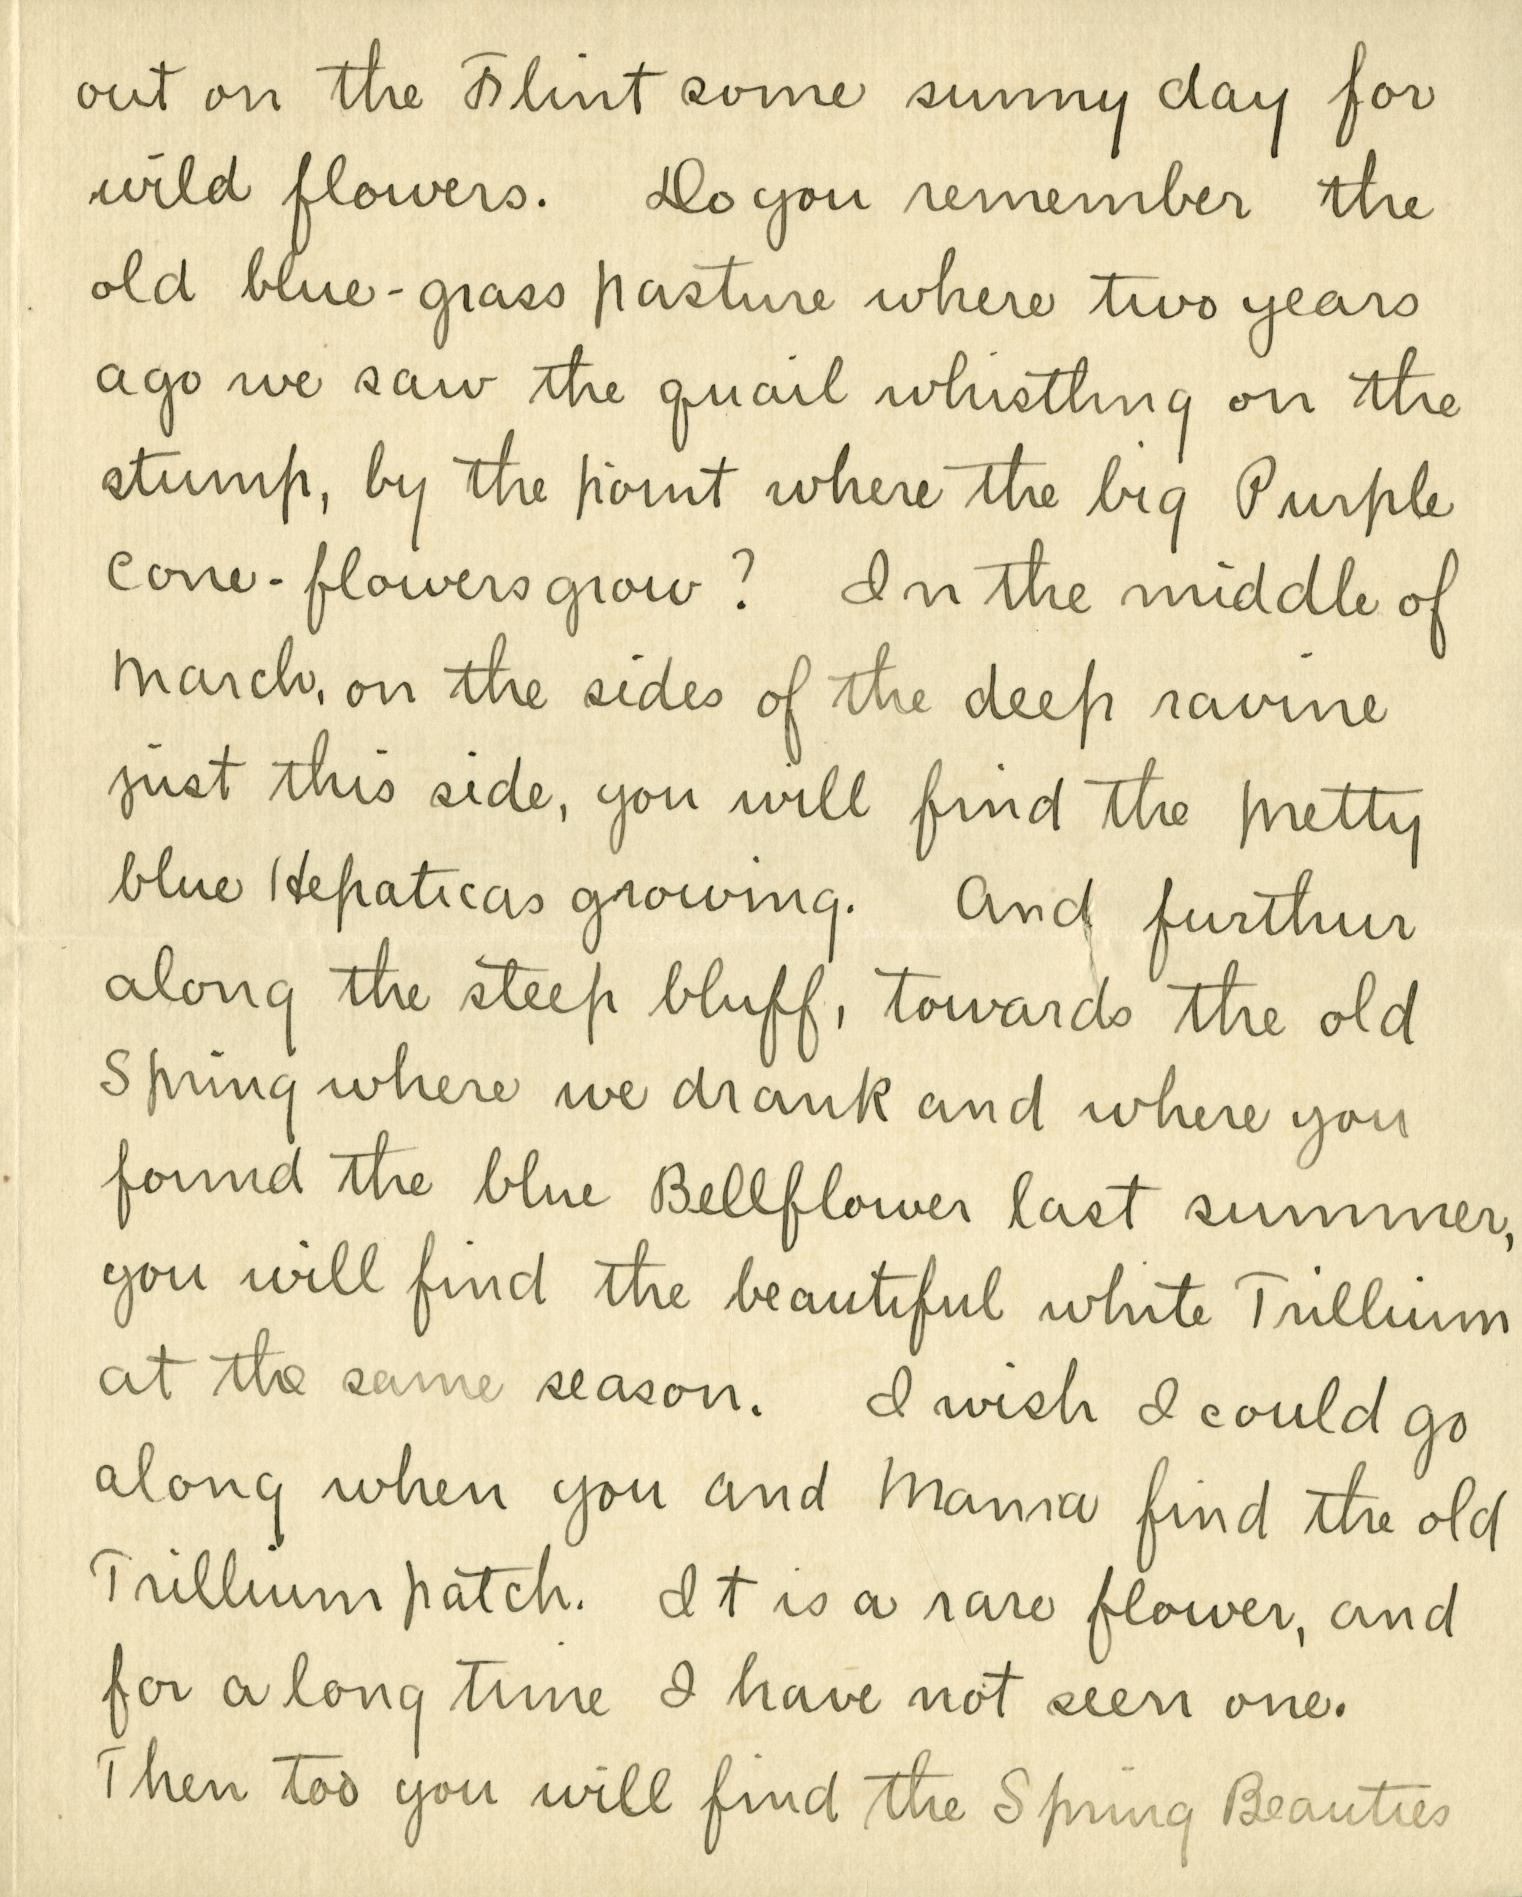 out on the Flint some sunny day for
wild flowers. Do you remember the
old blue-grass pasture where two years
ago we saw the quail whistling on the
stump, by the point where the big Purple
cone-flowers grow? In the middle of
March, on the sides of the deep ravine
just this side, you will find the pretty
blue Hepaticas growing. And further
along the steep bluff, towards the old
Spring where we drank and where you
found the blue Bellflower last summer,
you will find the beautiful white Trillium
at the same season. I wish I could go
along when you and Mama find the old
Trillium patch. It is a rare flower, and
for a long time I have not seen one.
Then too you will find the Spring Beauties